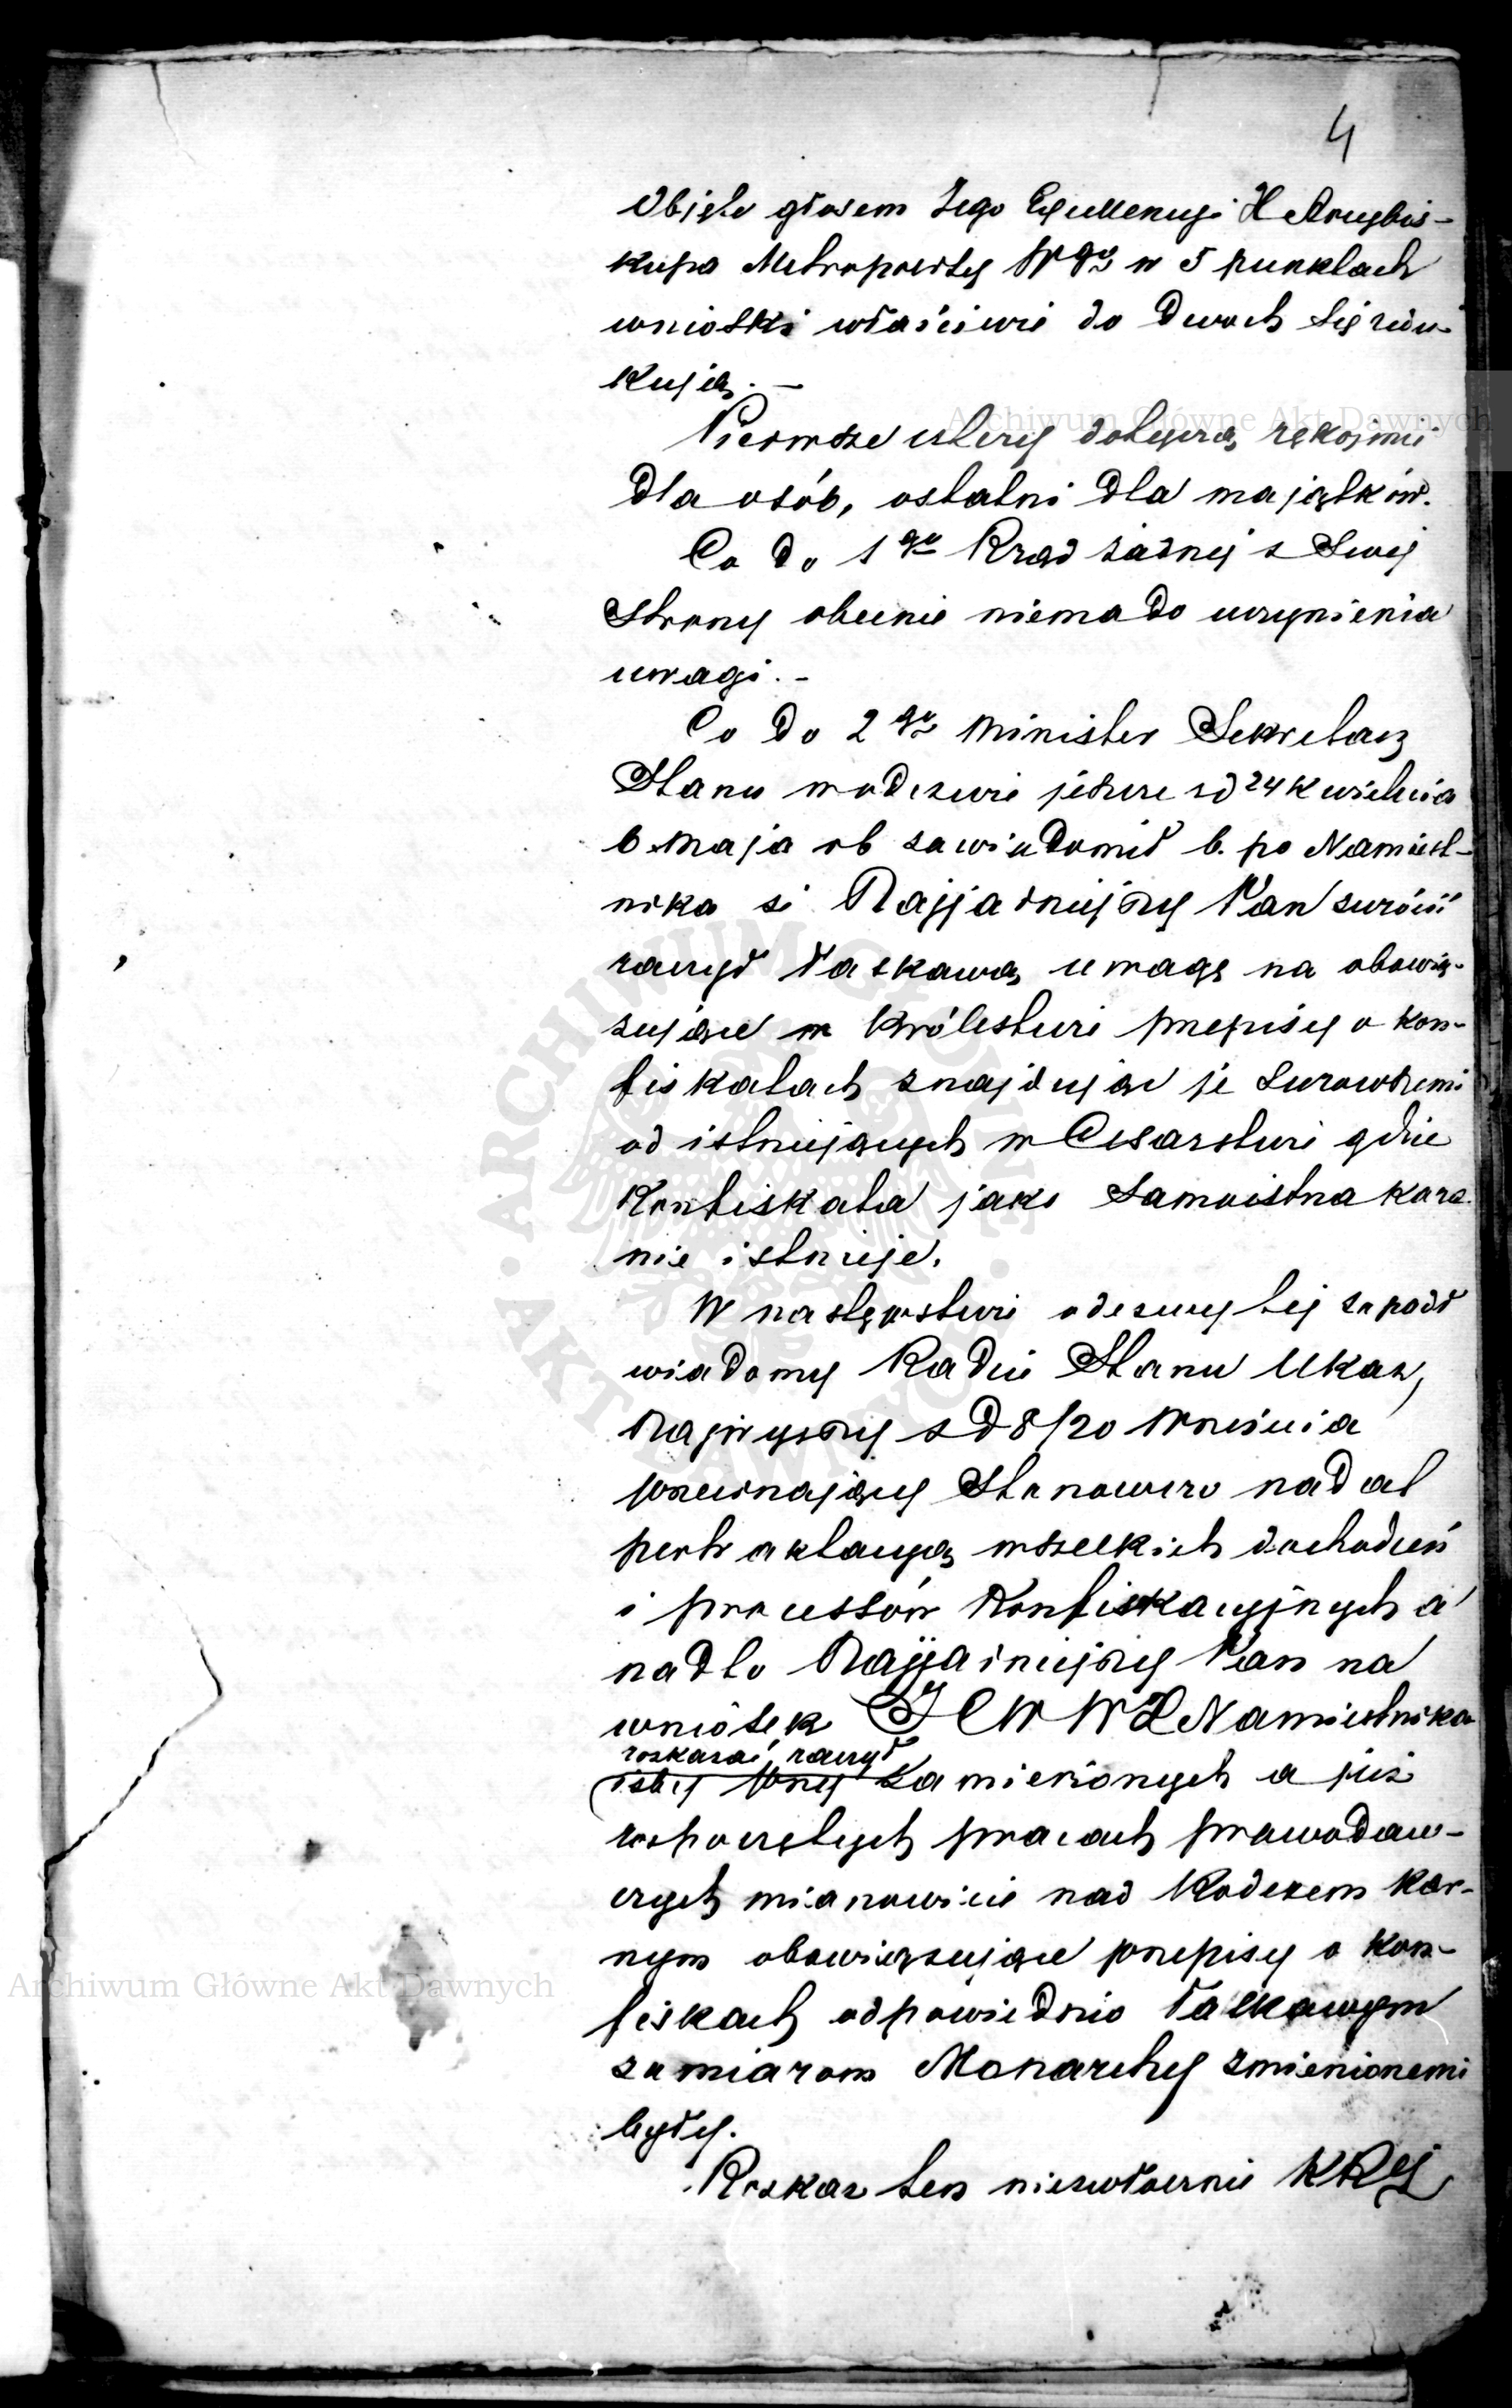 4
Objęte głosem Jego Excellencyi X Arcybis-
kupa Metropolity W go w 5 punktach
wnioski właściwie do dwóch się redu-
kują. –
Pierwsze cztery dotyczą rękojmii
dla osób, ostatni dla majątków.
Co do 1 go Rząd żadnej z Swej
Strony obecnie niema do uczynienia
uwagi. –
Co do 2 go Minister Sekretarz
Stanu w odezwie jeszcze z d 24 kwietnia
6 Maja rb zawiadomił b. po Namiest-
nika iż Najjaśniejszy Pan zwrócić
raczył łaskawą uwagę na obowią-
zujące w Królestwie przepisy o kon-
fiskatach znajdując je surowszemi
od istniejących w Cesarstwie gdzie
Konfiskata jako samoistna kara
nie istnieje.
W następstwie odezwy tej zapadł
wiadomy Radzie Stanu Ukaz,
Najwyższy z d 8/20 Września
przecinający Stanowczo nadal
pertraktacyą wszelkich dochodzeń
i processów Konfiskacyjnych a
nadto Najjaśniejszy Pan na
wniosek J C W W X Namiestnika
roskazać raczył
iżby przy zamierzonych a już
rospoczętych pracach prawodaw-
czych mianowicie nad Kodexem Kar-
nym obowiązujące przepisy o kon-
fiskach odpowiednio łaskawym
zamiarom Monarchy zmienionemi
były.
Roskaz ten niezwłocznie KRSj
Archiwum Główne Akt Dawnych
Archiwum Główne Akt Dawnych
ARCHIWUM GŁÓWNE AKT DAWNYCH